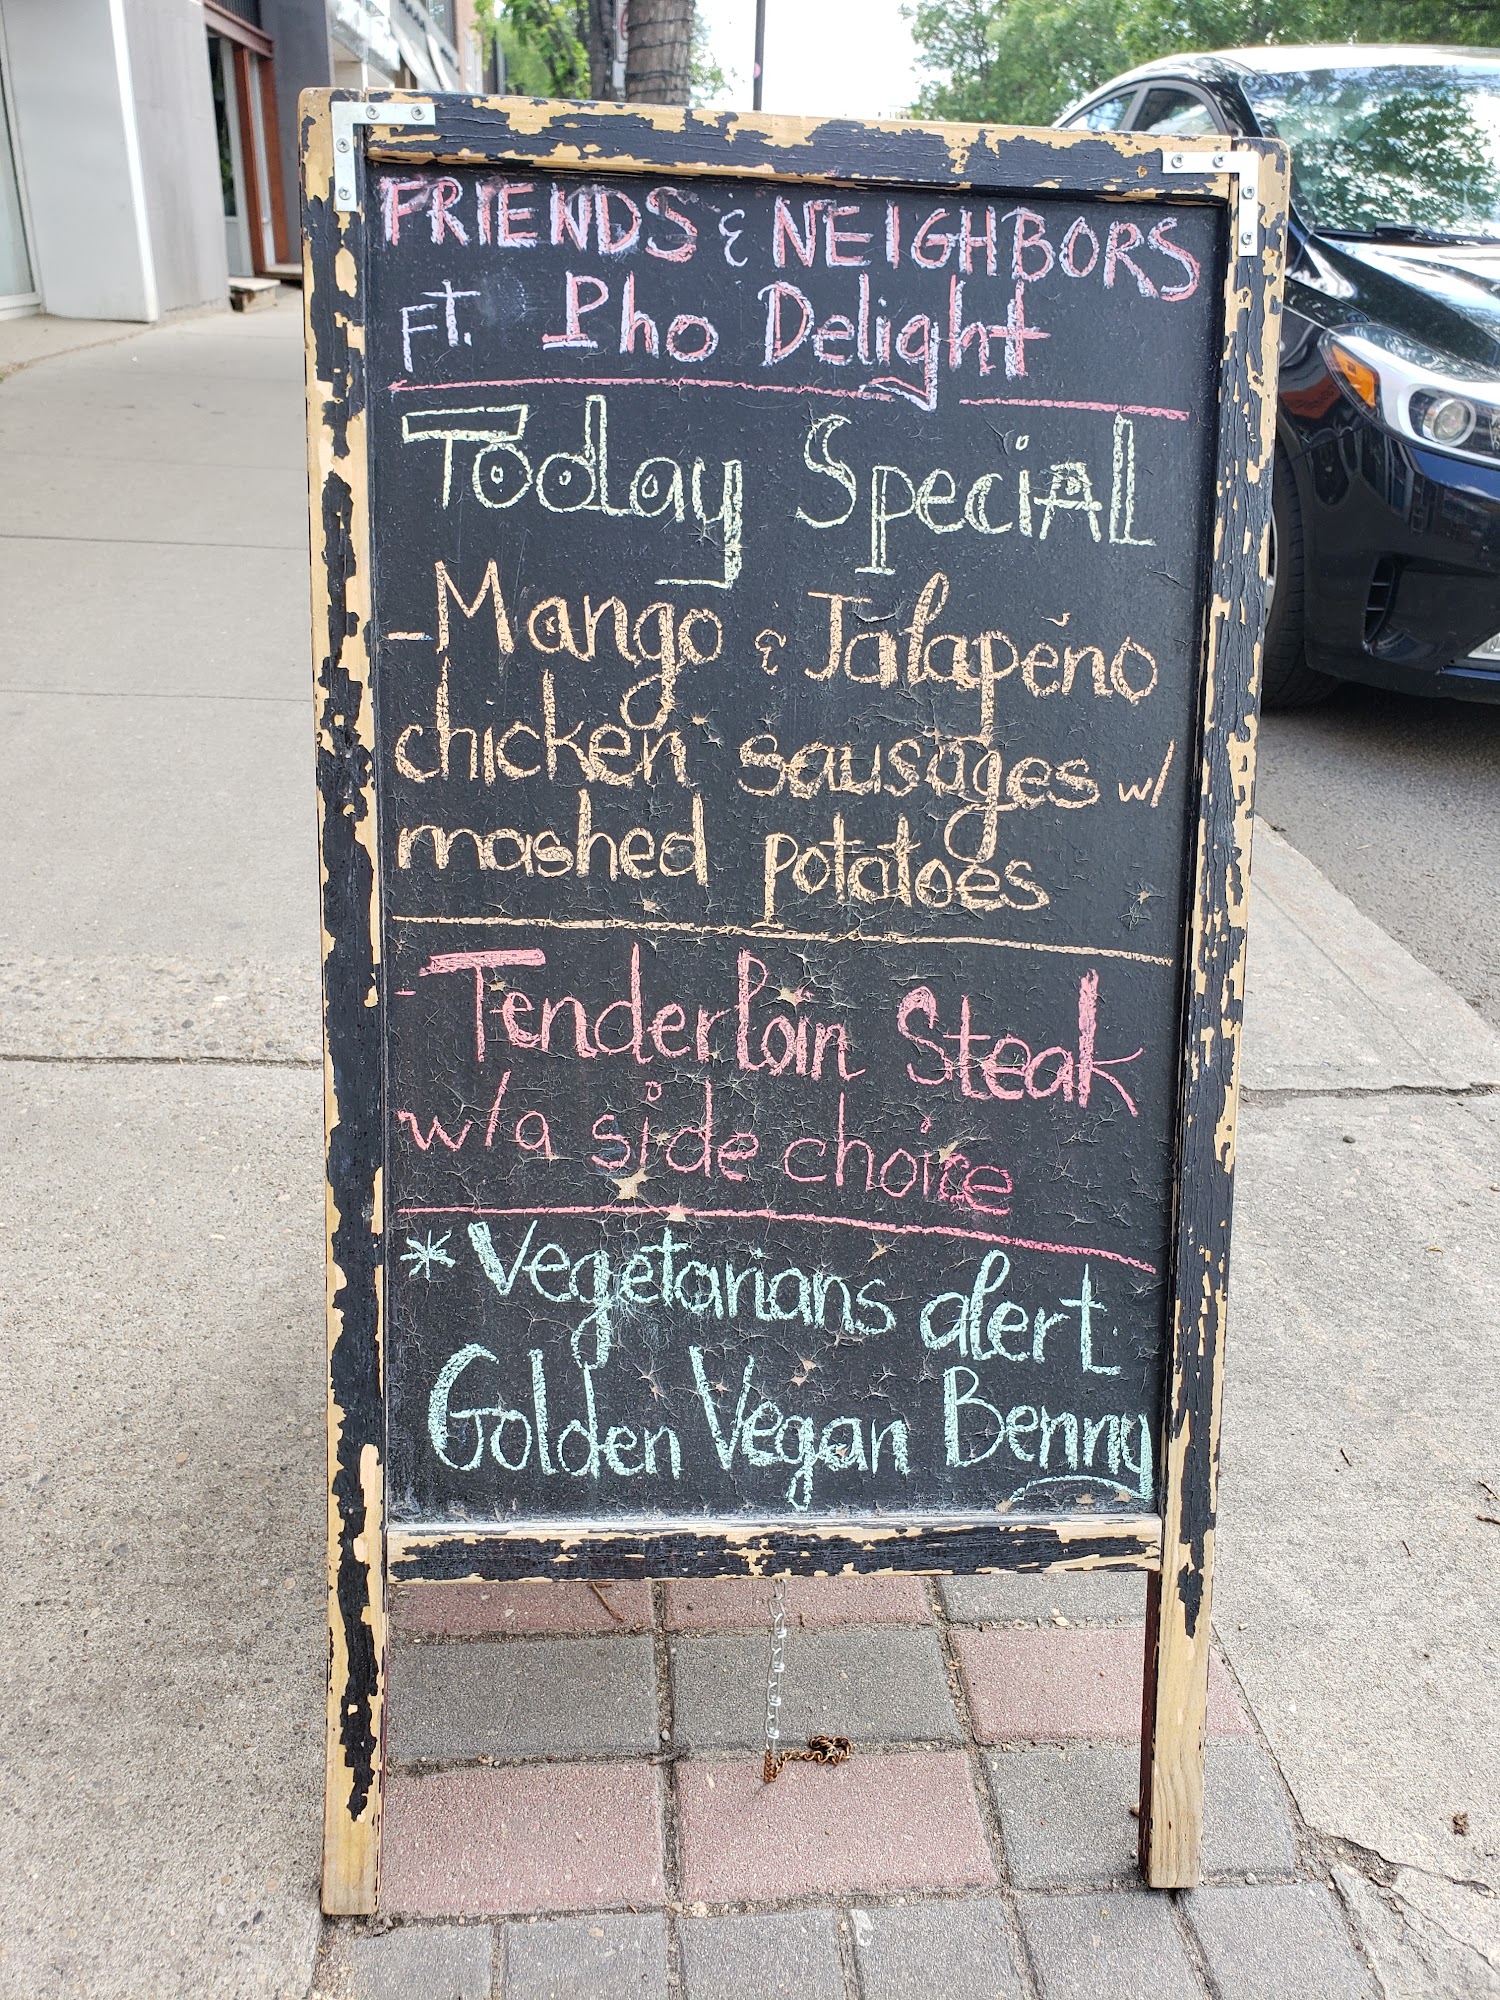 FRIENDS & NEIGHBORS
FT. Pho Delight
Today Special
- Mango & Jalapeño
chicken sausages w/
mashed potatoes
- Tenderloin Steak
w/a side choice
* Vegetarians alert
Golden Vegan Benny